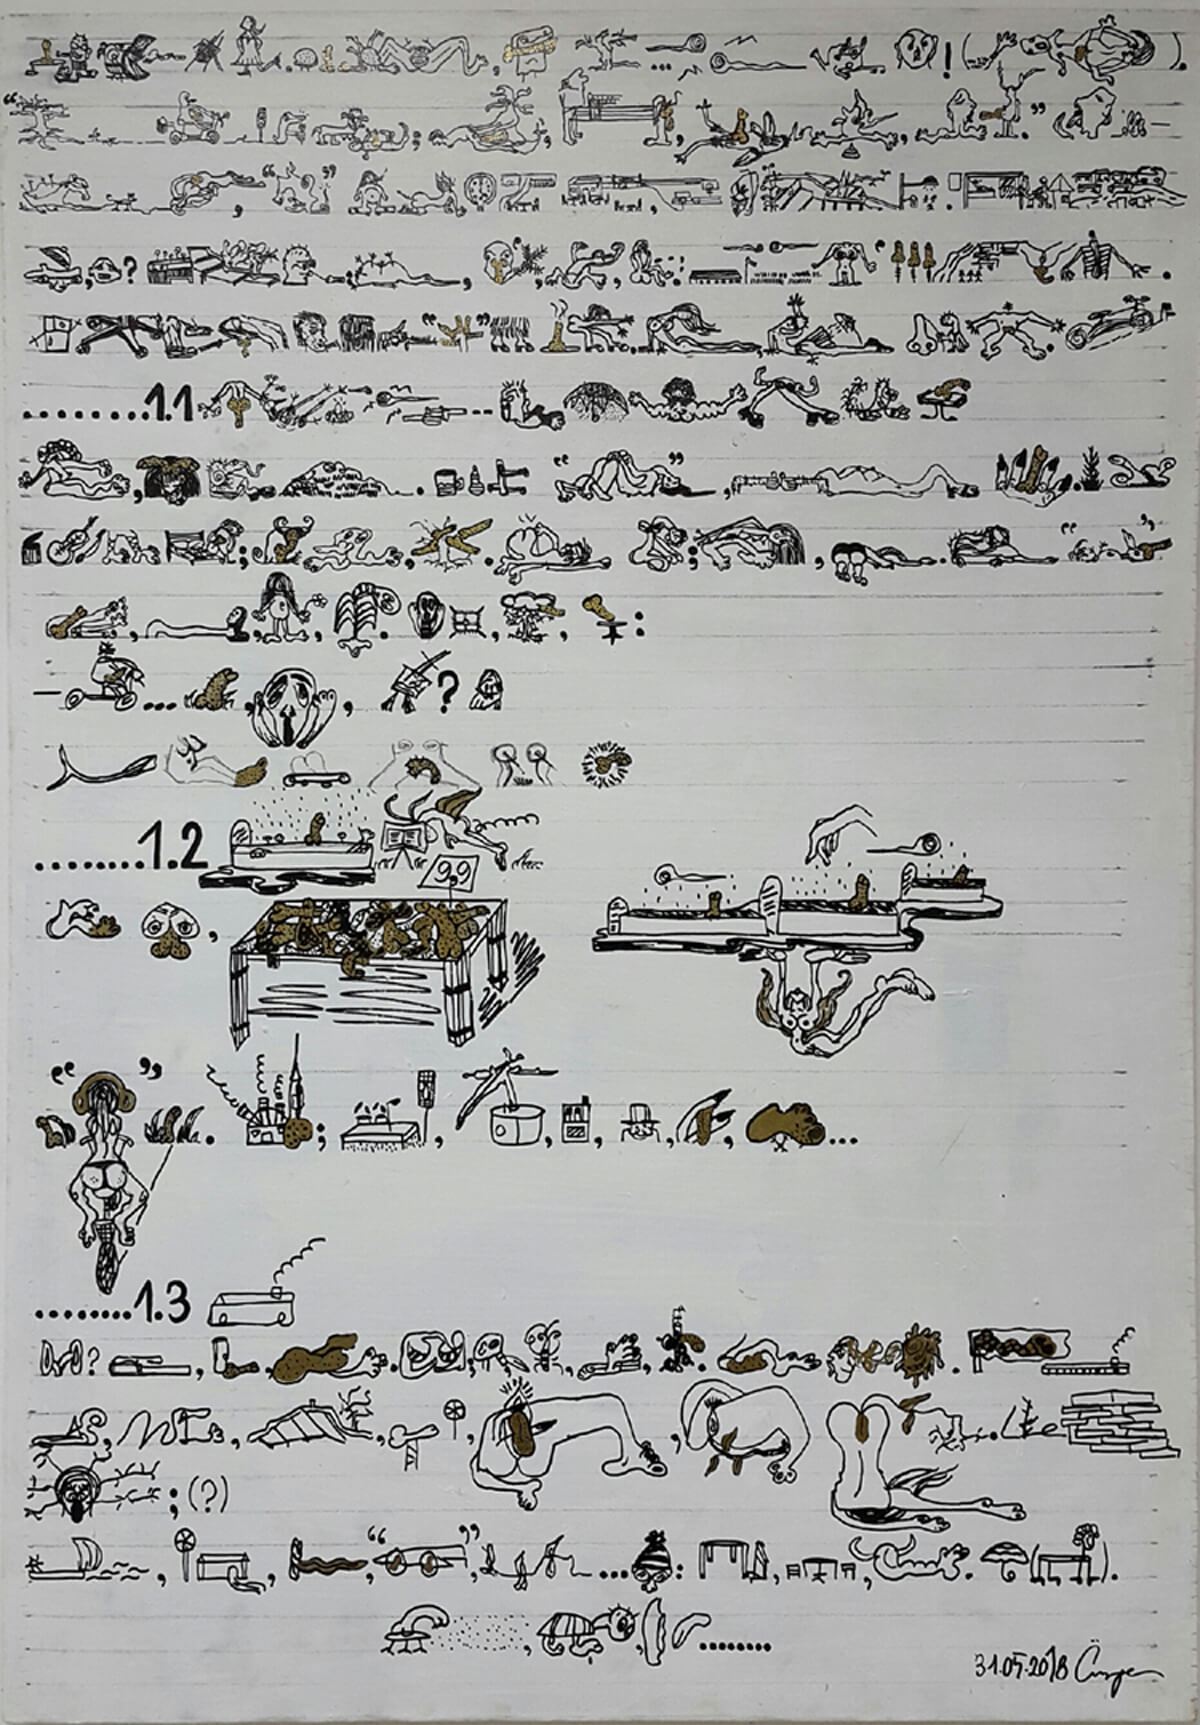 ........1.1
........1.2
99
........1.3
?
; (?)
31.05.2018